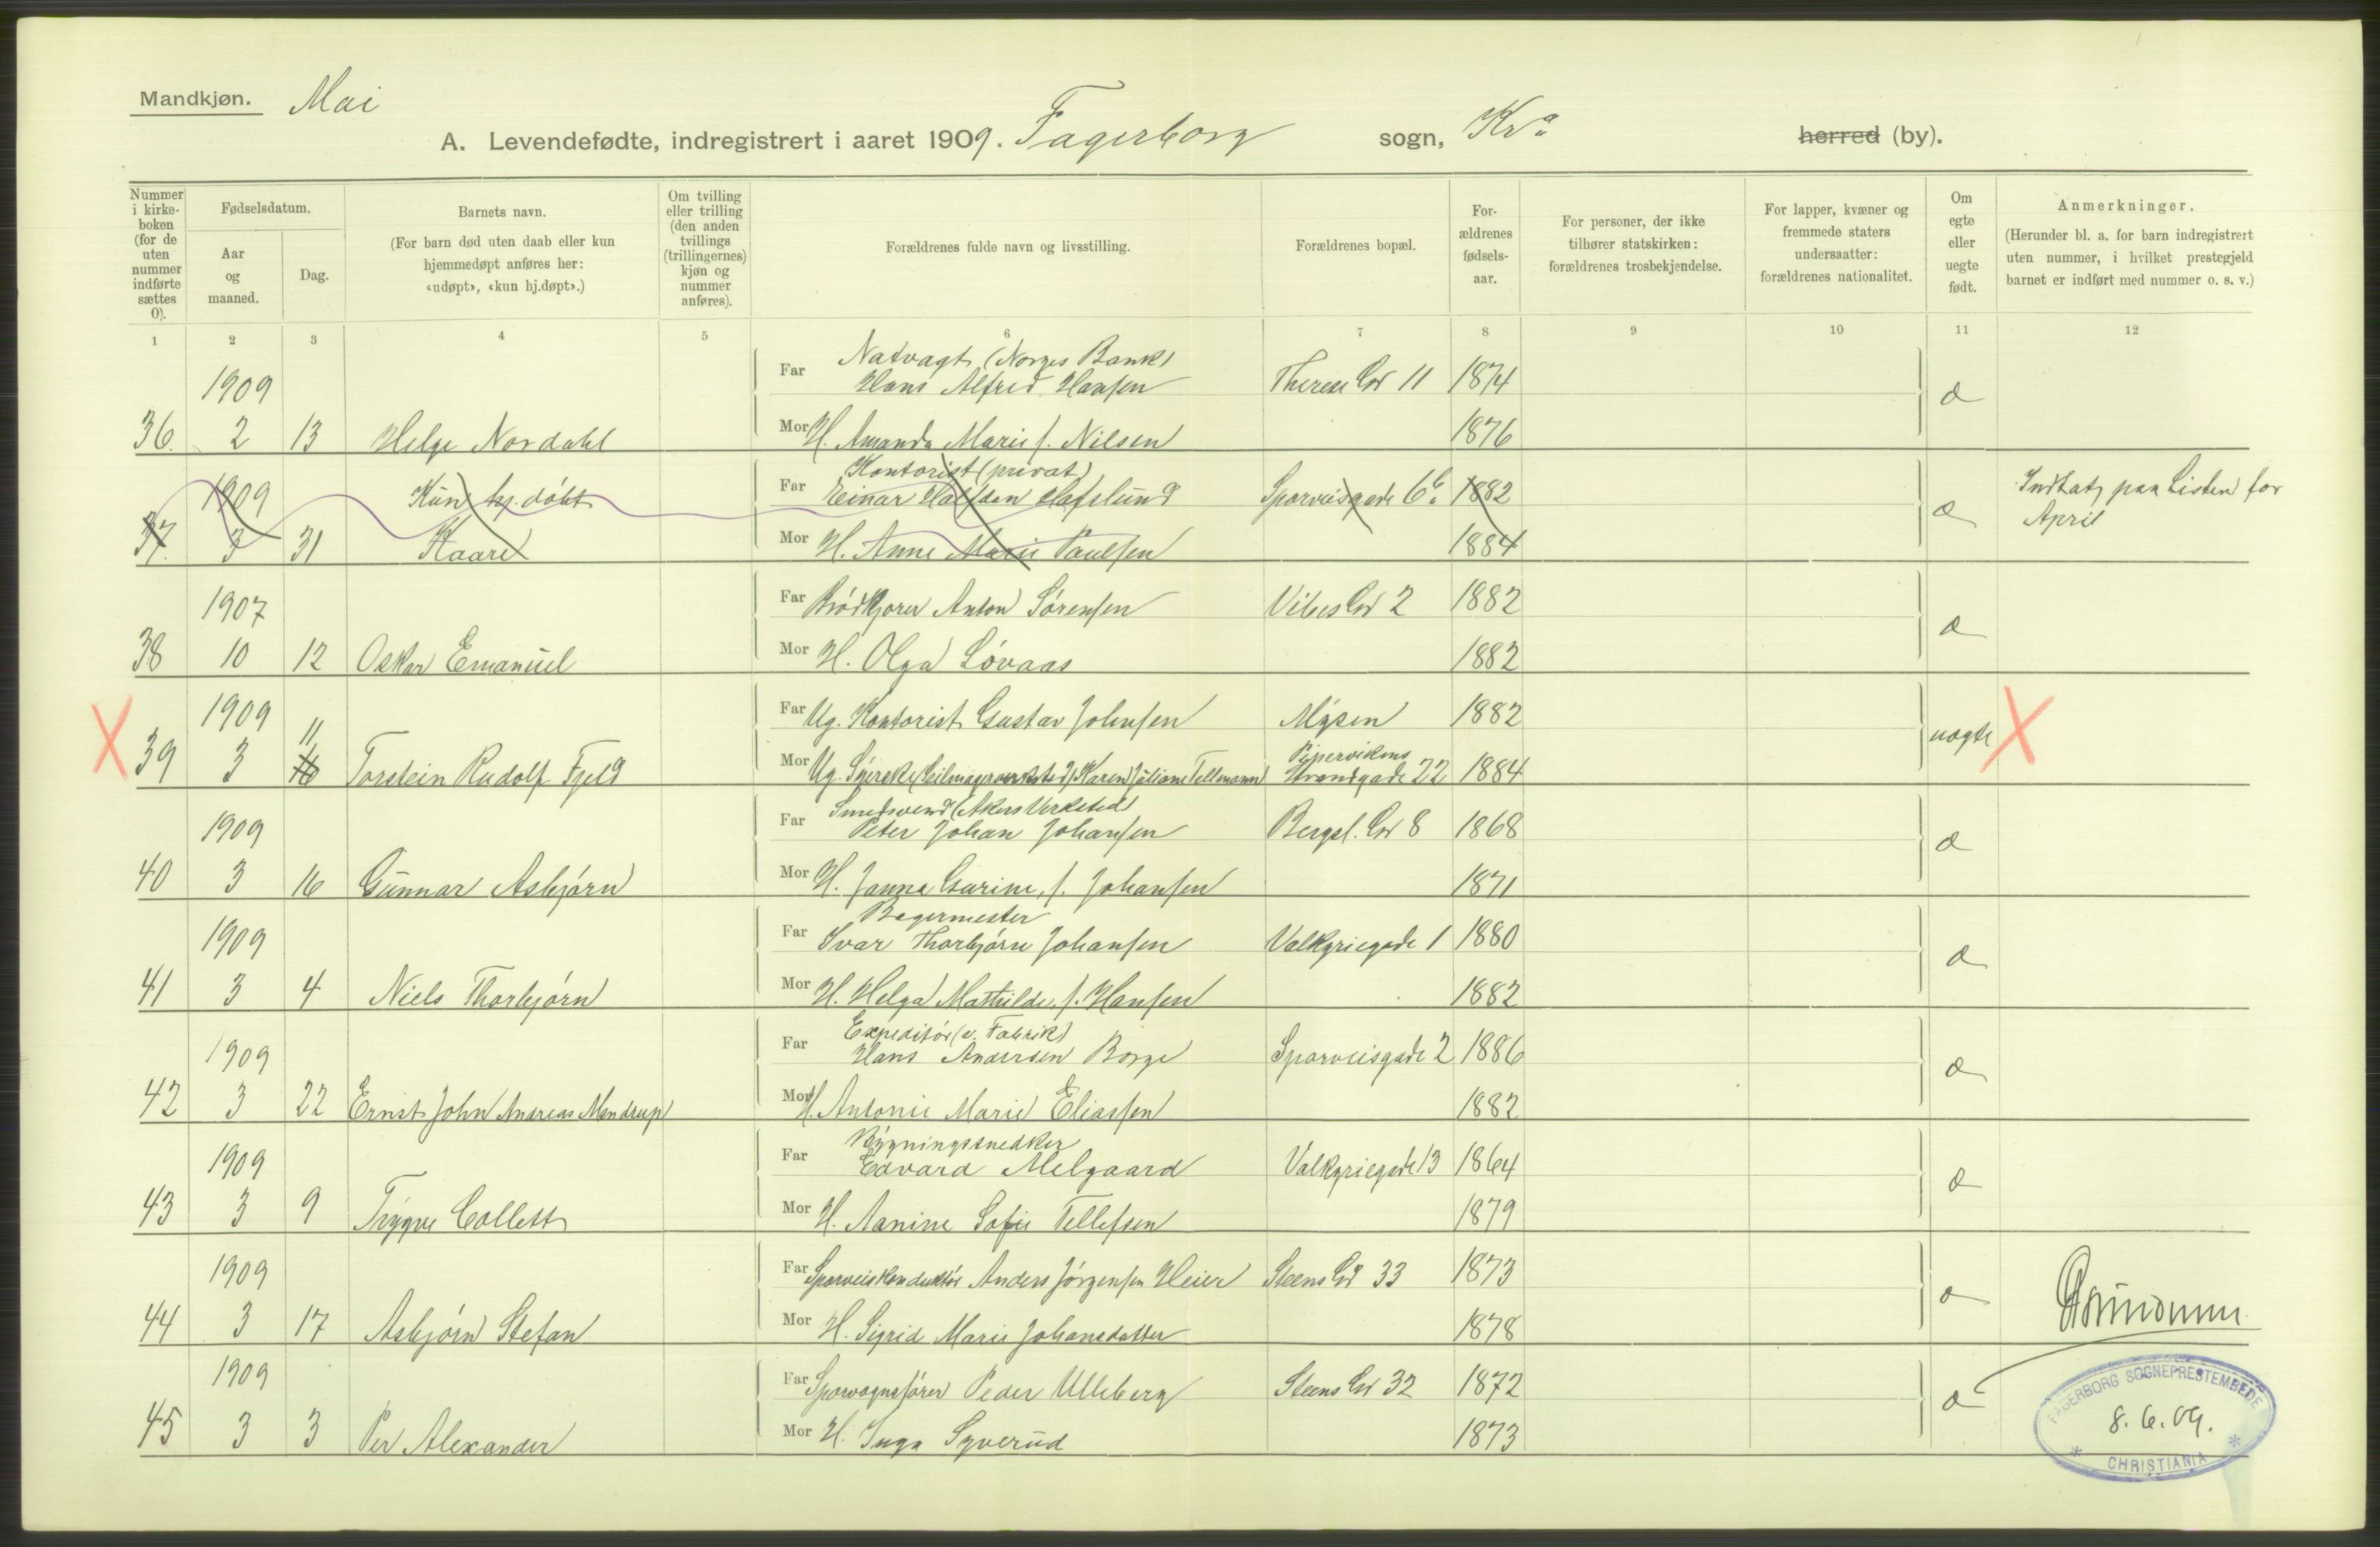 Mandkjøn. Mai
A. Levendefødte, indregistrert i aaret 1909. Fagerborg sogn, Kra herred (by).
Nummer i kirkeboken (for de uten nummer indførte sættes 0).
Fødselsdatum.
Aar og maaned.
Dag.
Barnets navn.
(For barn død uten daab eller kun hjemmedøpt anføres her: «udøpt», «kun hj.døpt».)
Om tvilling eller trilling (den anden tvillings (trillingernes) kjøn og nummer anføres).
Forældrenes fulde navn og livsstilling.
Forældrenes bopæl.
Forældrenes fødselsaar.
For personer, der ikke tilhører statskirken: forældrenes trosbekjendelse.
For lapper, kvæner og fremmede staters undersaatter: forældrenes nationalitet.
Om egte eller uegte født.
Anmerkninger.
(Herunder bl. a. for barn indregistrert uten nummer, i hvilket prestegjeld barnet er indført med nummer o. s. v.)
1 2 3 4 5 6 7 8 9 10 11 12
Natvagt (Norges Bank)
1909 Far Hans Alfred Hansen Therese Gd 11 1874 æ
36. 2 13 Helge Nordahl Mor H. Amanda Marie f. Nilsen 1876
Kontorist (privat)
1909 Kun hj. døbt Far Einar Halfdan Hafslund Sporveisgade 6b. 1882 æ Indtat paa Listen for
April
37. 3 31 Kaare Mor H. Anne Marie Paulsen 1884
1907 Far Brødkjører Anton Sørensen Vibes Gd 2 1882 æ
38 10 12 Oskar Emanuel Mor H. Olga Løvaas 1882
1909 Far Ug. Kontorist Gustav Johnsen Mysen 1882 uægte X
11
X 39 3 16 Torstein Rudolf Fjeld Mor Ug. Syerske (Seilmagerverksted) Karen Juliane Tellmann Pipervikens
Strandgade 22 1884
Smedsvend (Akers Verksted)
1909 Far Peter Johan Johansen Bergsl. Gd 8 1868 æ
40 3 16 Gunnar Asbjørn Mor H. Janna Gurine, f. Johansen 1871
Bagermester
1909 Far Ivar Thorbjørn Johansen Valkyriegade 1 1880 æ
41 3 4 Niels Thorbjørn Mor H. Helga Mathilde, f. Hansen 1882
Expeditør (v. Fabrik)
1909 Far Hans Andersen Borge Sporveisgade 2 1886 æ
42 3 22 Ernst John Andreas Mandrup Mor H. Antonie Marie Eliassen 1882
Bygningssnedker
1909 Far Edvard Melgaard Valkyriegade 13 1864 æ
43 3 9 Trygve Collett Mor H. Aanine Sofie Tellefsen 1879
1909 Far Sporveiskonduktør Anders Jørgensen Heier Steens Gd 33 1873 æ
44 3 17 Asbjørn Stefan Mor H. Sigrid Marie Johansdatter 1878
1909 Far Sporvognsfører Peder Ulleberg Steens Gd 32 1872 æ
45 3 3 Per Alexander Mor H. Inga Syverud 1873
FAGERBORG SOGNEPRESTEMBEDE
8.6.09.
* CHRISTIANIA *